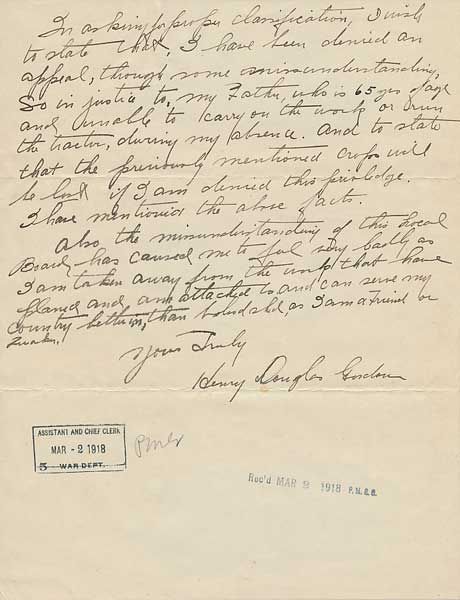 In asking a proper classification, I wish
to state that, I have been denied an
appeal, though some misunderstanding,
So in justice to, my Father, who is 65 yrs of age
and unable to carry on the work or run
the tractor, during my absence. And to state
that the previously mentioned crops will
be lost if I am denied this priviledge.
I have mentioned the above facts.
Also the misunderstanding of this Local
Board, has caused me to feel very badly, as
I am taken away from the work that have
planed and, am attached to and can serve my
country better in, than bloodshed, as I am a Friend or
Quaker.
Yours Truly
Henry Douglas Gordon
ASSISTANT AND CHIEF CLERK
MAR - 2 1918
5 WAR DEPT.
Rec'd MAR 2 1918 P.M.G.G.